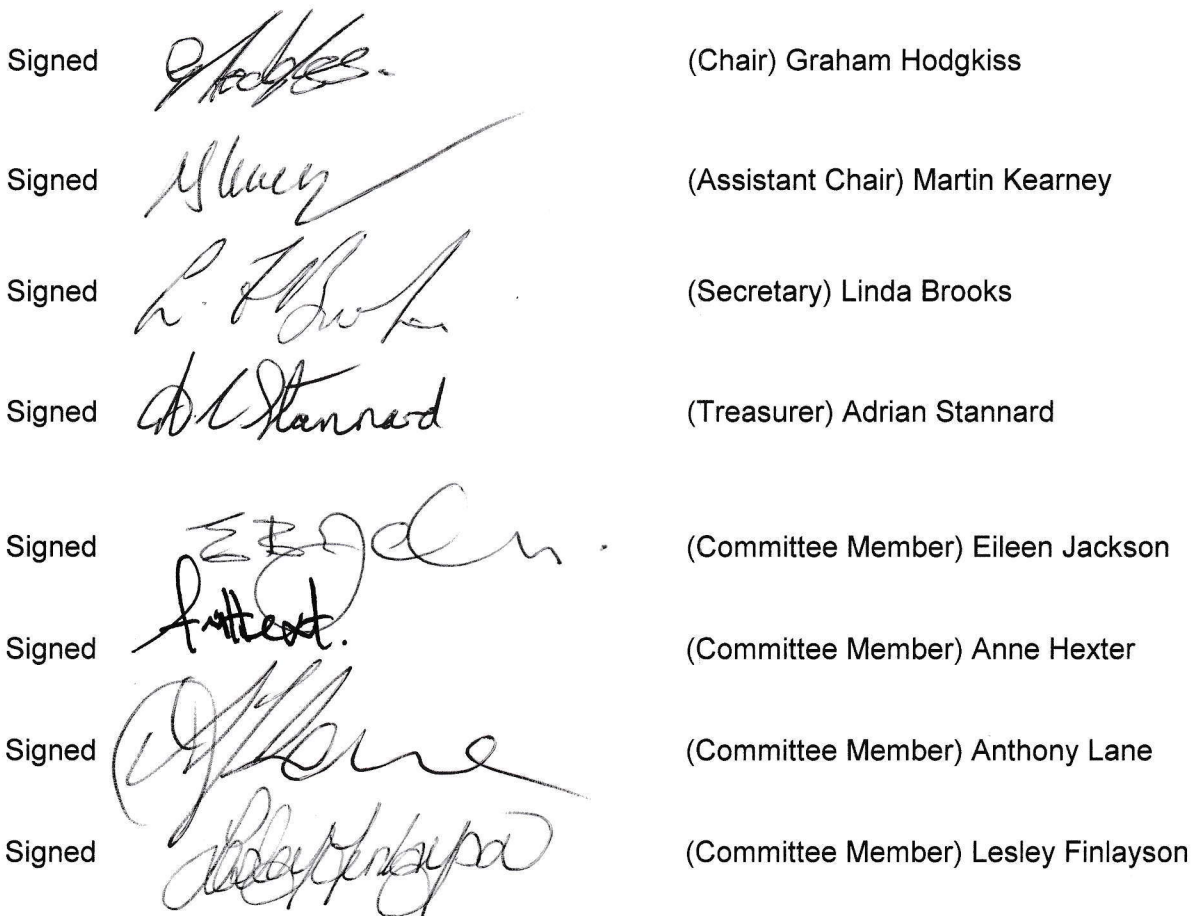 Signed G Hodgkiss. (Chair) Graham Hodgkiss
Signed (Assistant Chair) Martin Kearney
Signed L. Brooks (Secretary) Linda Brooks
Signed Stannard (Treasurer) Adrian Stannard
Signed (Committee Member) Eileen Jackson
Signed (Committee Member) Anne Hexter
Signed Lane (Committee Member) Anthony Lane
Signed Lesley Finlayson (Committee Member) Lesley Finlayson